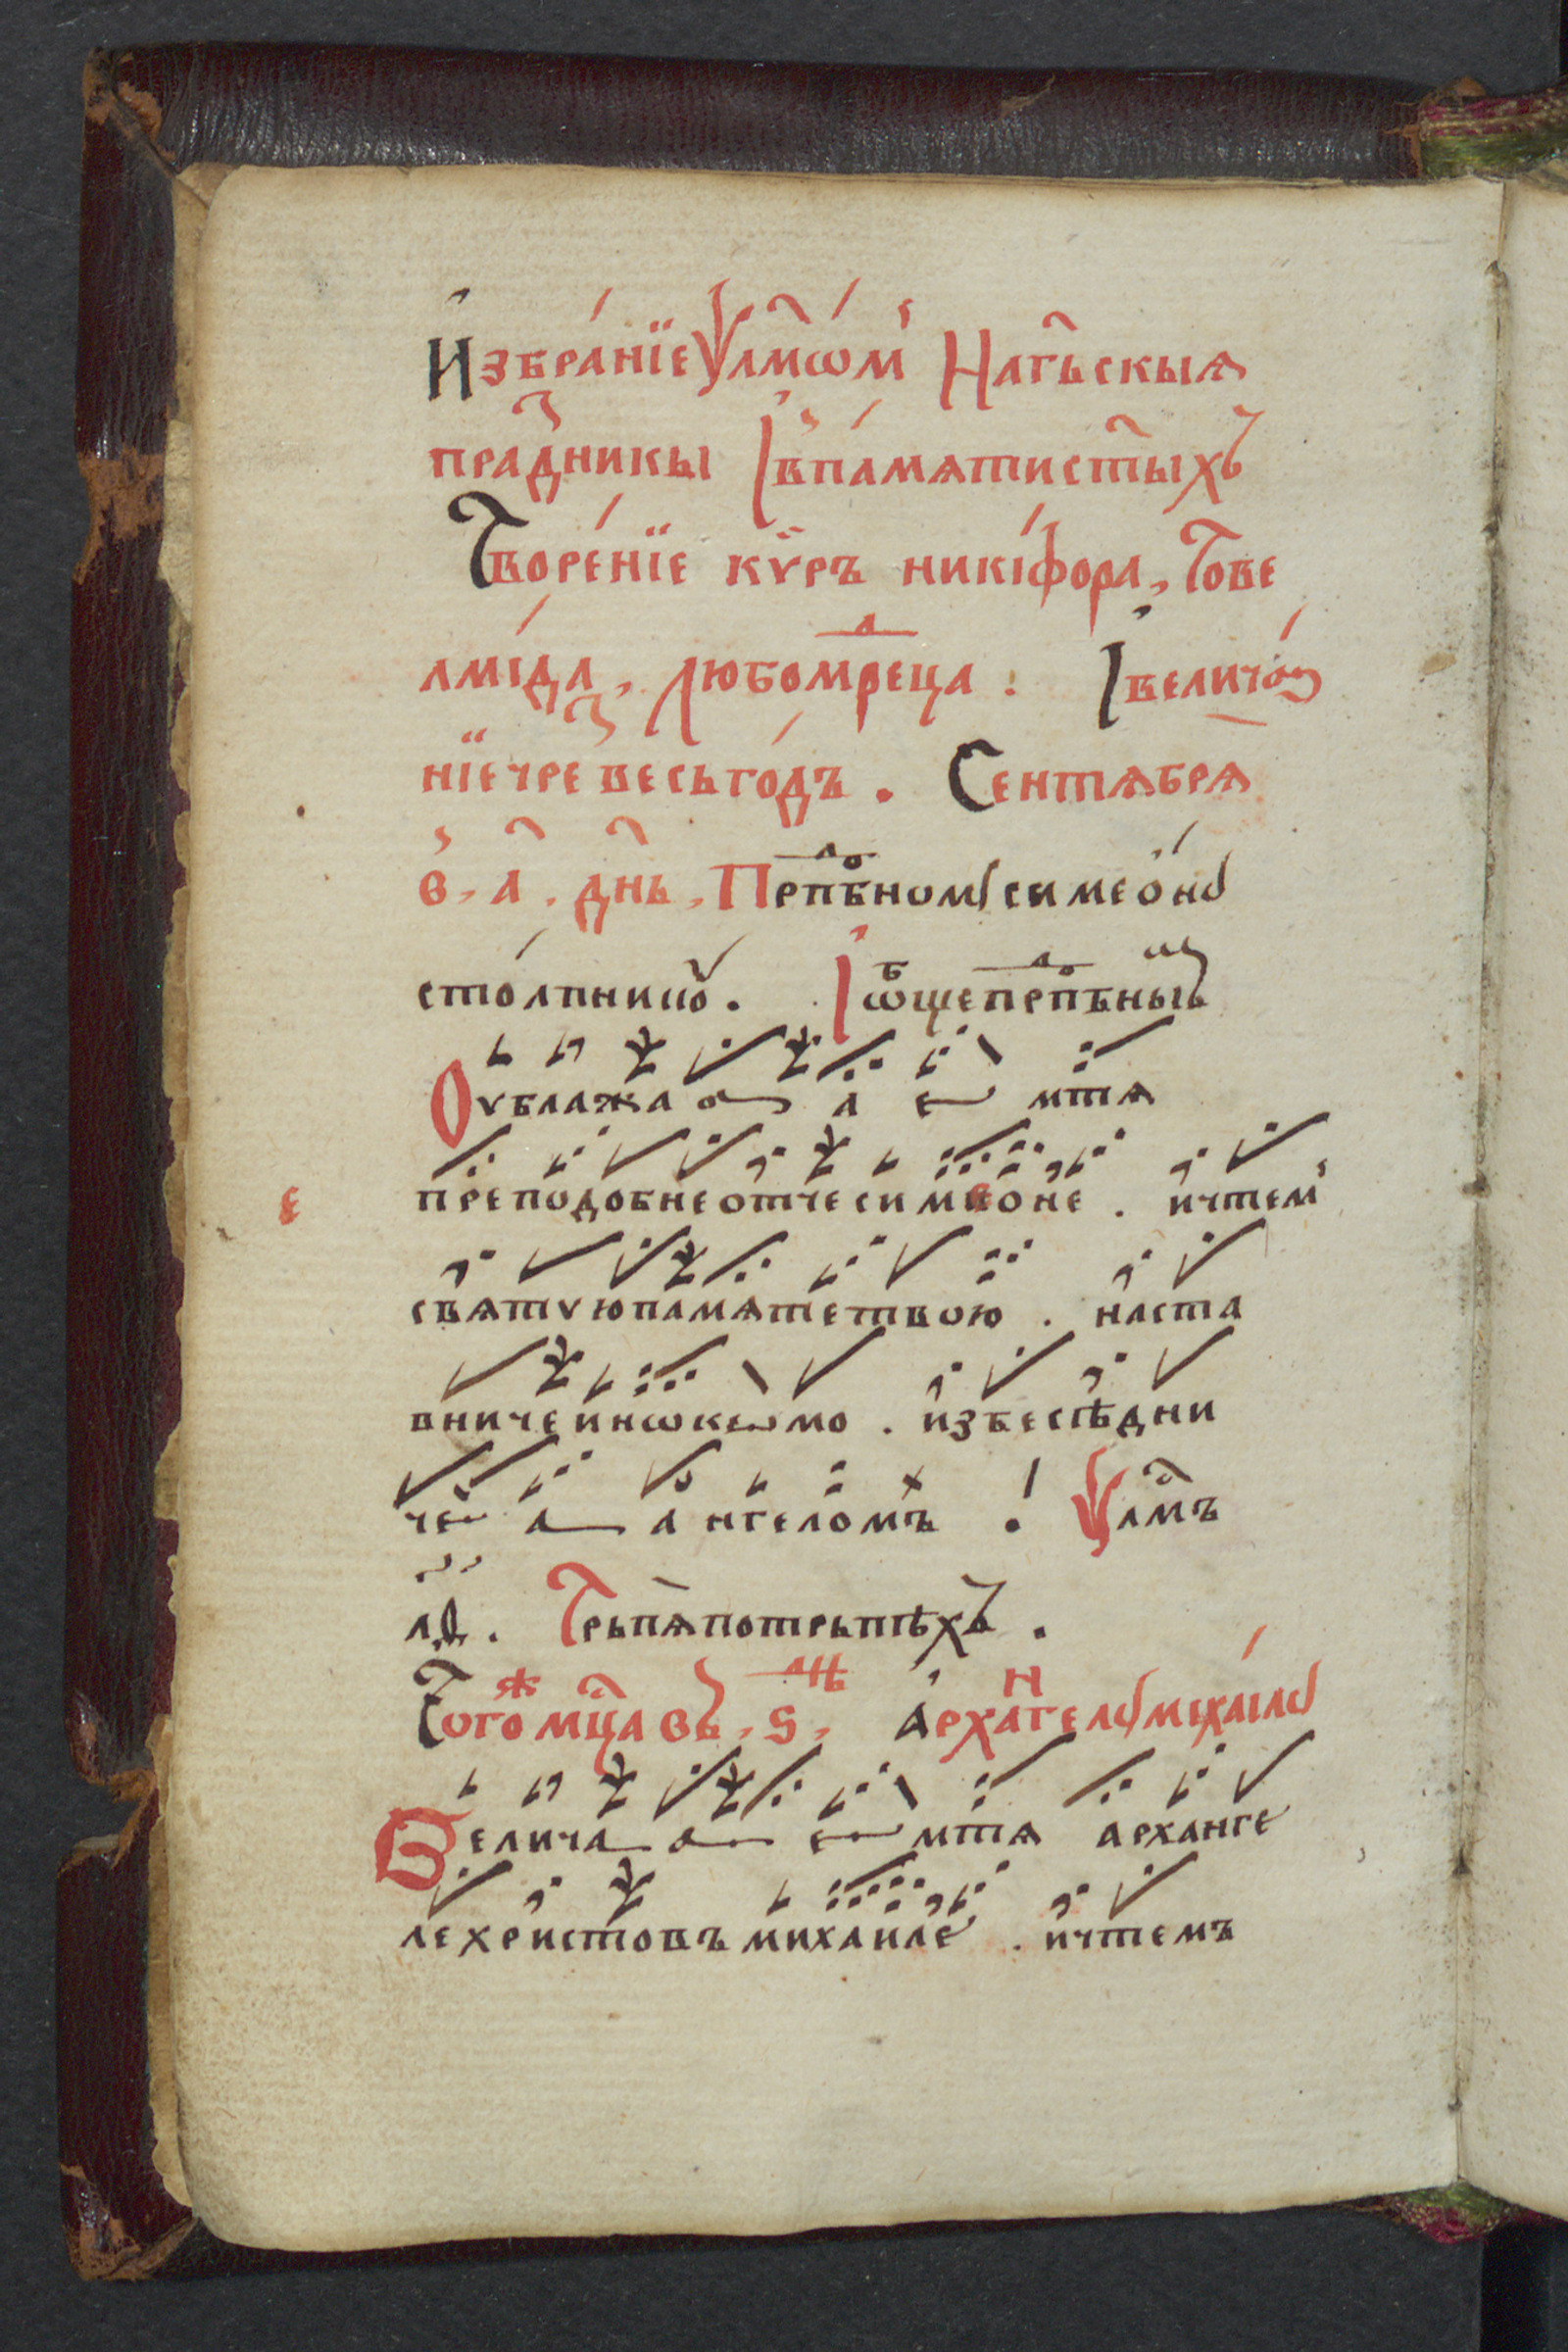 Избра́нїе ѱлмѡ́м Нагьскыѧ
праⷥдникы І впа́мѧтистыхъ
Творе́нїе кѵръ никі́фора, Тове
лмі́да, Любомⷣреца : І велича́
нїе чреⷥ весь го́дъ . Сентѧбрѧ
в, а҃ . днь, Прпⷣбномꙋ симео́нꙋ
сто́лпникꙋ . І ѻ҆бще прпⷣбныⷨ
Оублажа а а е мтѧ
преподобне отче симеоне . и҆чтем
свѧтую памѧте твою . наста
вниче инокомо . и҆збесѣдни
че а ангеломъ . Ѱлмъ
л҃д . Трьпѧ потрьпѣхъ .
Тогоⷤ мц҃а въ, ѕ, днь а҆рхаⷩгелꙋ міхаі́лꙋ
Велича а е мтѧ арханге
ле христовъ михаиле . и҆чтемъ
е